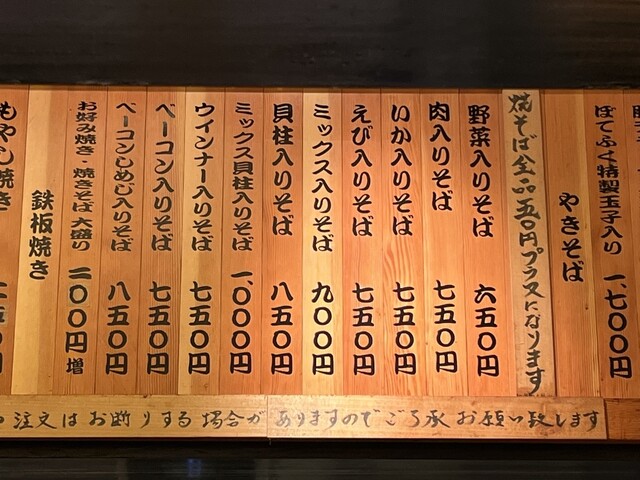 ぼてふく特製玉子入り 一、七〇〇円
やきそば
焼そば全品五〇円プラスになります
野菜入りそば 六五〇円
肉入りそば 七五〇円
いか入りそば 七五〇円
えび入りそば 七五〇円
ミックス入りそば 九〇〇円
貝柱入りそば 八五〇円
ミックス貝柱入りそば 一、〇〇〇円
ウインナー入りそば 七五〇円
ベーコン入りそば 七五〇円
ベーコンしめじ入りそば 八五〇円
お好み焼き・焼きそば 大盛り 二〇〇円増
鉄板焼き
もやし焼き
注文はお断りする場合がありますのでご了承お願い致します